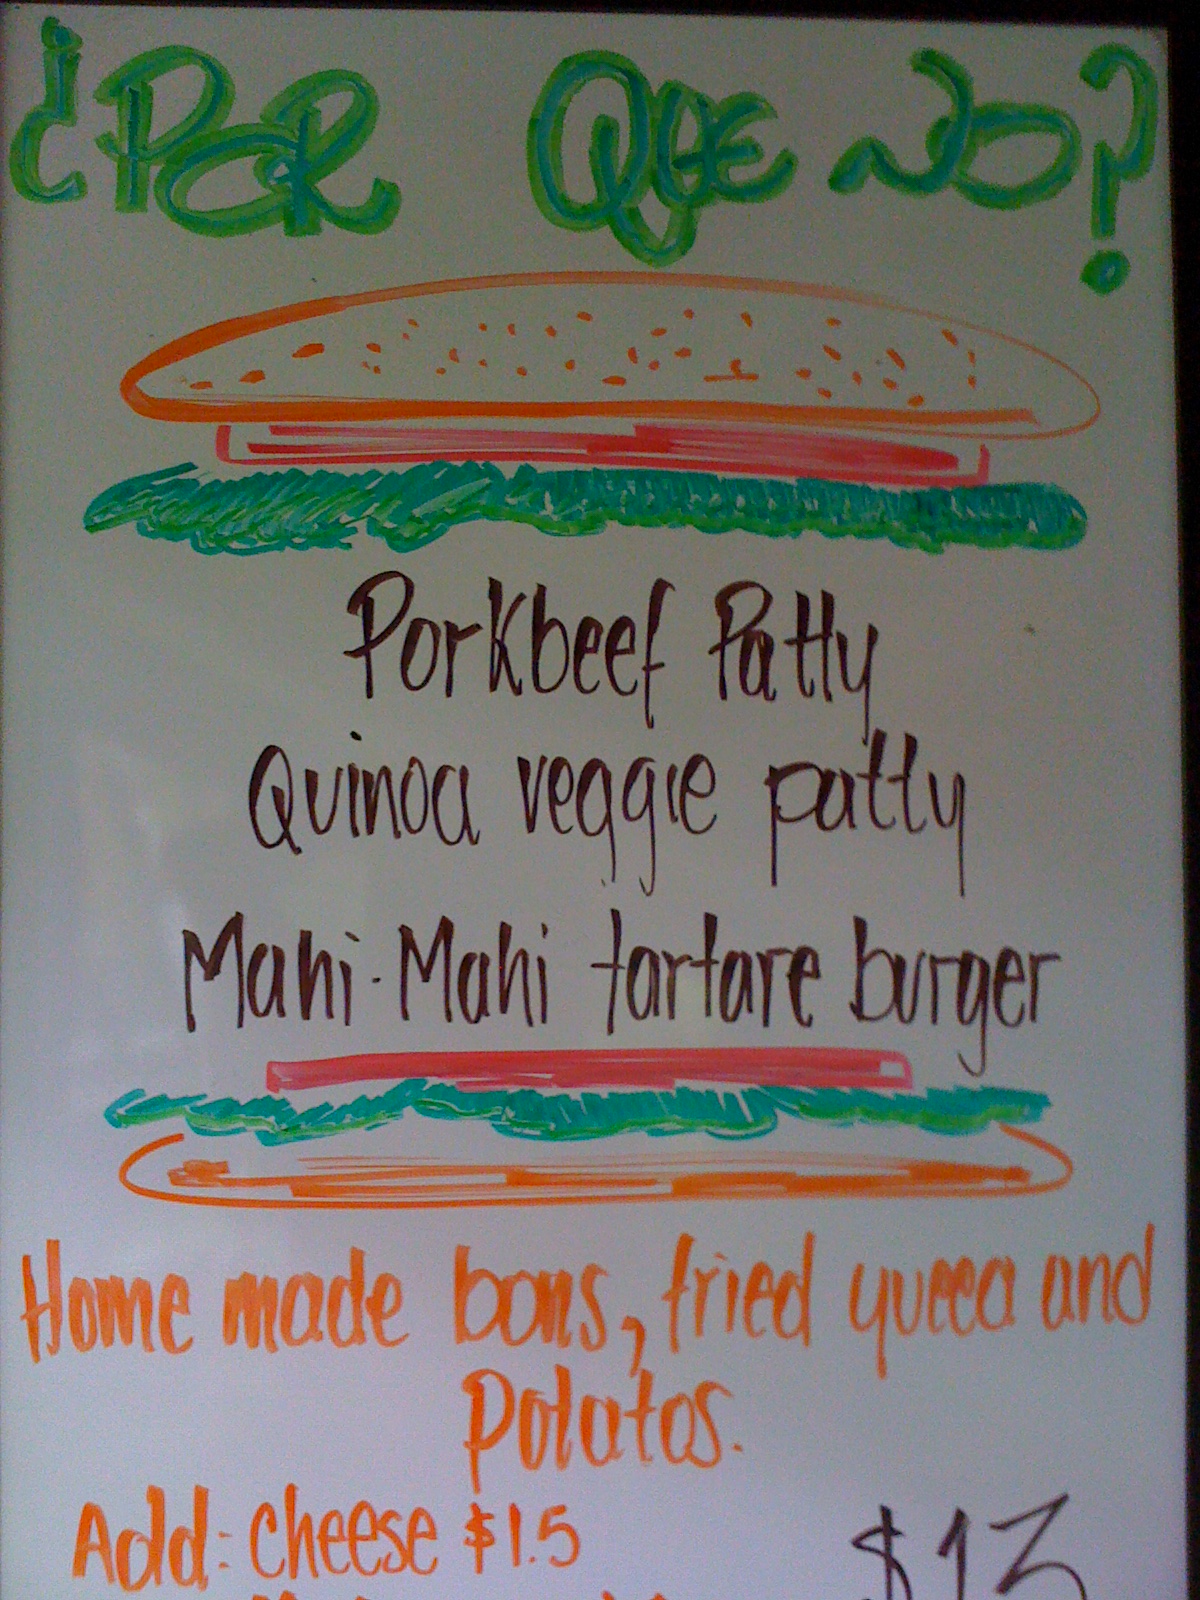 ¿POR QUE NO?
Porkbeef Patty
Quinoa veggie patty
Mahi-Mahi tartare burger
Home made bons, fried yucca and
Potatos.
Add: cheese $1.5
$13